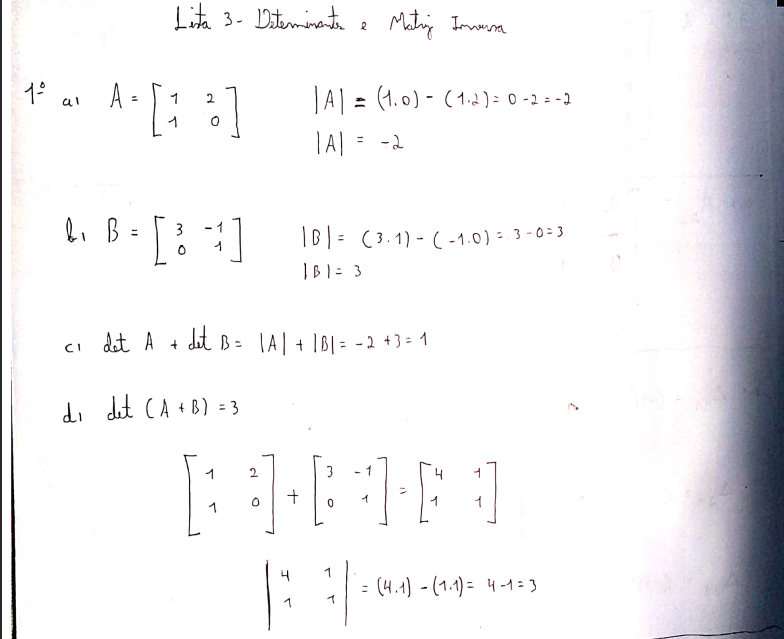 Lista 3- Determinante e Matriz Inversa
1º a) A = [ 1 2 |A| = (1.0) - (1.2) = 0 - 2 = -2
1 0 ] |A| = -2
b) B = [ 3 -1 |B| = (3.1) - (-1.0) = 3 - 0 = 3
0 1 ] |B| = 3
c) det A + det B = |A| + |B| = -2 + 3 = 1
d) det (A + B) = 3
[ 1 2 + [ 3 -1 = [ 4 1
1 0 ] 0 1 ] 1 1 ]
| 4 1 | = (4.1) - (1.1) = 4 - 1 = 3
| 1 1 |